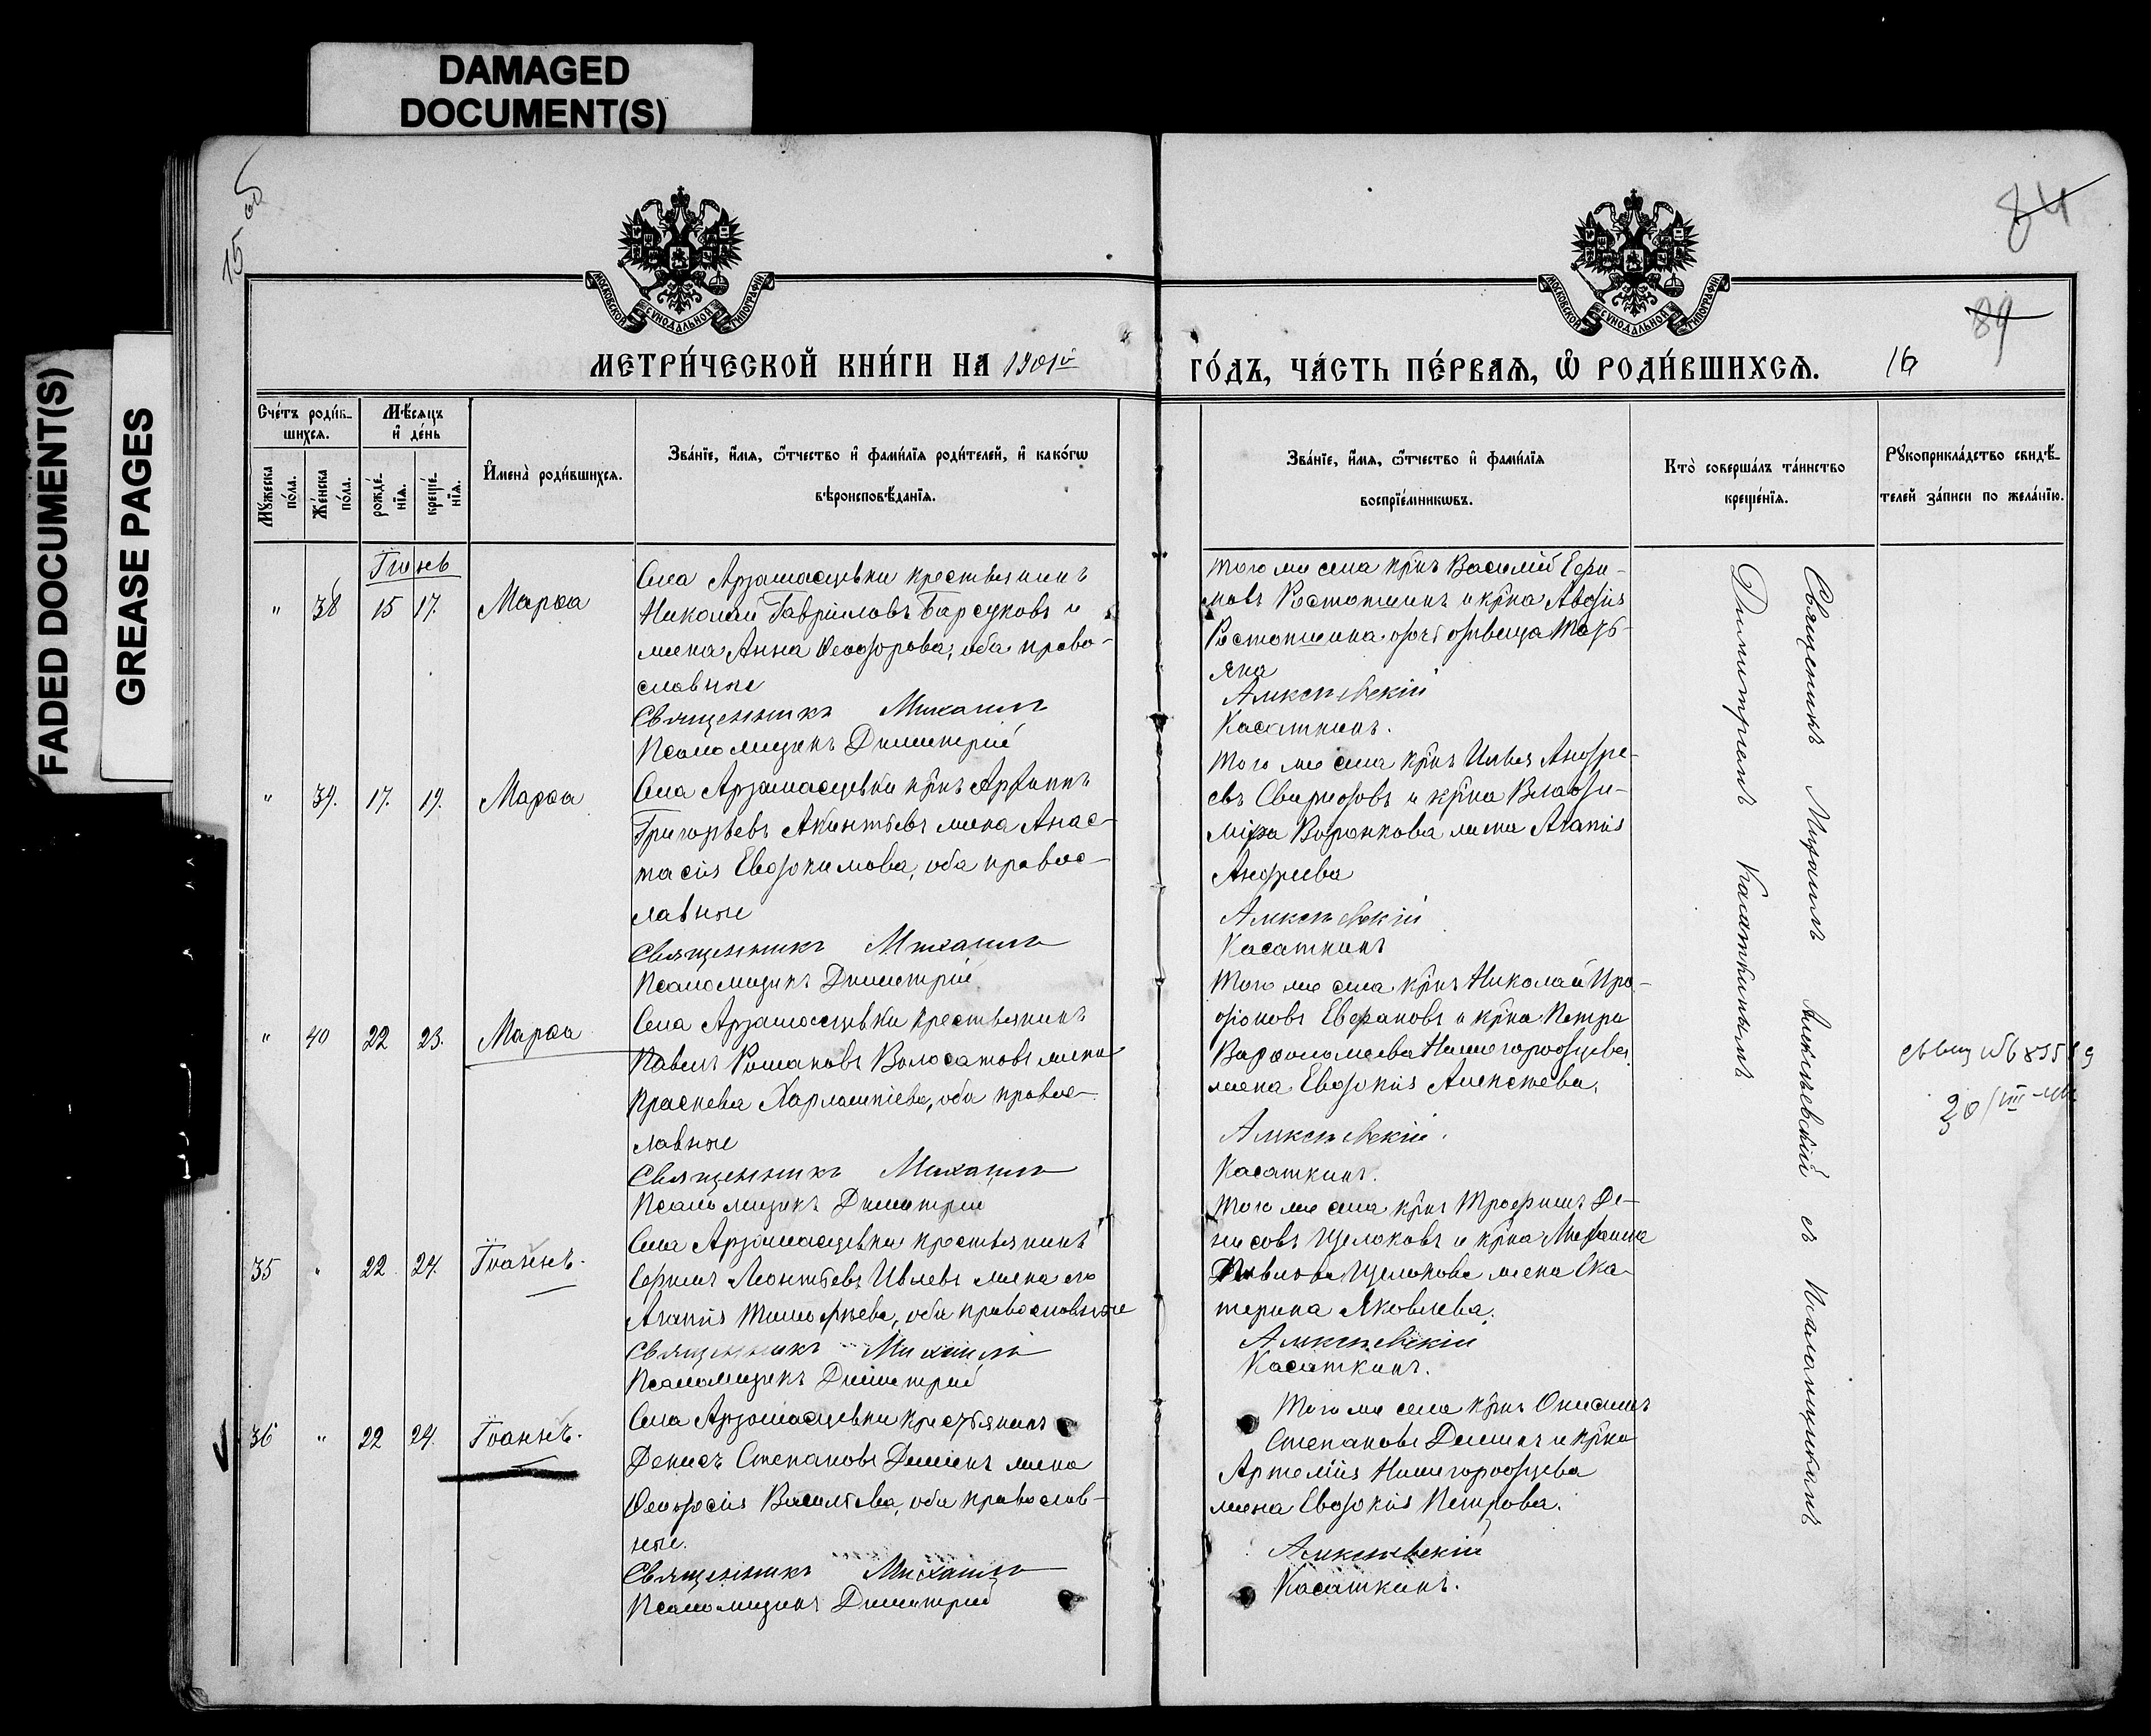 DAMAGED
DOCUMENT(S)
FADED DOCUMENT(S)
GREASE PAGES
84
89
МОСКОВСКОЙ СУНОДАЛЬНОЙ ТИПОГРАФІИ
МОСКОВСКОЙ СУНОДАЛЬНОЙ ТИПОГРАФІИ
МЕТРИ́ЧЕСКОЙ КНИ́ГИ НА 1901й
ГО́ДЪ, ЧА́СТЬ ПЕ́РВАѦ, Ѽ РОДИ́ВШИХСѦ. 16
Сче́тъ роди́в-
шихсѧ.
Мꙋжеска по́ла.
Же́нска по́ла.
Мѣ́сяцъ
и҆ де́нь
рожде́-
нїѧ.
креще́-
нїѧ.
И҆мена̀ роди́вшихсѧ.
Зва́нїе, и҆́мѧ, ѻ҆́тчество и҆ фами́лїѧ роди́телей, и҆ како́гѡ
вѣроисповѣ́данїѧ.
Зва́нїе, и҆́мѧ, ѻ҆́тчество и҆ фами́лїѧ
воспрїе́мникѡвъ.
Кто̀ соверша́лъ та́инство
креще́нїѧ.
Рꙋкоприкла́дство свидѣ́-
телей за́писи по жела́нїю.
Іюнь
" 38 15 17. Марѳа
Села Арзамасцевки крестьянинъ
Николай Гавриловъ Барсуковъ и
жена Анна Ѳеодорова, оба право-
славные
Священникъ Михаилъ
Псаломщикъ Димитрій
того же села кр̃нъ Василій
Ростопшинъ и кр̃ка
Ростопшина
Алексѣевскій
Касаткинъ.
" 39. 17. 19. Марѳа
Села Арзамасцевки кр̃нъ Архипъ
Григорьевъ Акинтьевъ жена Анас-
тасія Евдокимова, оба правос-
лавные
Священникъ Михаилъ
Псаломщикъ Димитрій
Того же села кр̃нъ Илья Андре-
евъ Свиридовъ и кр̃ка Влади-
міра Воронкова жена Агапія
Андреева
Алексѣевскій
Касаткинъ
" 40 22 23. Марѳа
Села Арзамасцевки крестьянинъ
Павелъ Романовъ Волосатовъ жена
Харлампіева, оба правос-
лавные
Священникъ Михаилъ
Псаломщикъ Димитрій
Того же села кр̃нъ Николай Про-
Евграновъ и кр̃ка Петра
Варѳоломеева Нижегородцева
жена Евдокія Алексѣева.
Алексѣевскій.
Касаткинъ.
35 " 22 24. Іоаннъ.
Села Арзамасцевки крестьянинъ
Сергѣй Леонтьевъ Ивлевъ жена его
Агапія Тимоѳеева, оба православные
Священникъ Михаилъ
Псаломщикъ Димитрій
Того же села кр̃нъ Трофимъ Де-
нисовъ Щелоковъ и кр̃ка Михаила
Павлова Щелокова жена Ека-
терина Яковлева.
Алексѣевскій
Касаткинъ.
36 " 22 24. Іоаннъ.
Села Арзамасцевки крестьянинъ
Денисъ Степановъ Деминъ жена
Ѳеодосія Васильева, оба православ-
ные.
Священникъ Михаилъ
Псаломщикъ Димитрій
Того же села кр̃нъ Онисимъ
Степановъ Деминъ и кр̃ка
Артемія Нижегородцева
жена Евдокія Петрова.
Алексѣевскій
Касаткинъ.
Священникъ Михаилъ Алексѣевскій съ Псаломщикомъ
Димитріемъ Касаткинымъ